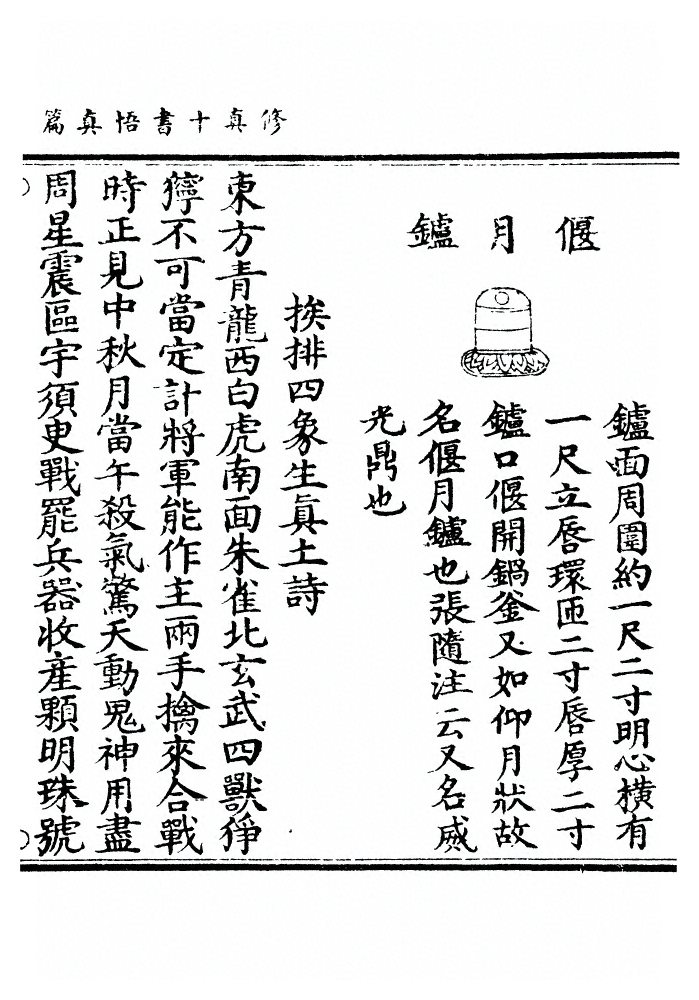 修真十書悟真篇
偃月鑪
鑪面周圍約一尺二寸明心橫有
一尺立唇環匝二寸唇厚二寸
鑪口偃開鍋釜又如仰月狀故
名偃月鑪也張隨注云又名威
光鼎也
挨排四象生真土詩
東方青龍西白虎南面朱雀北玄武四獸猙
獰不可當定計將軍能作主兩手擒來合戰
時正見中秋月當午殺氣驚天動鬼神用盡
周星震區宇須更戰罷兵器收產顆明珠號